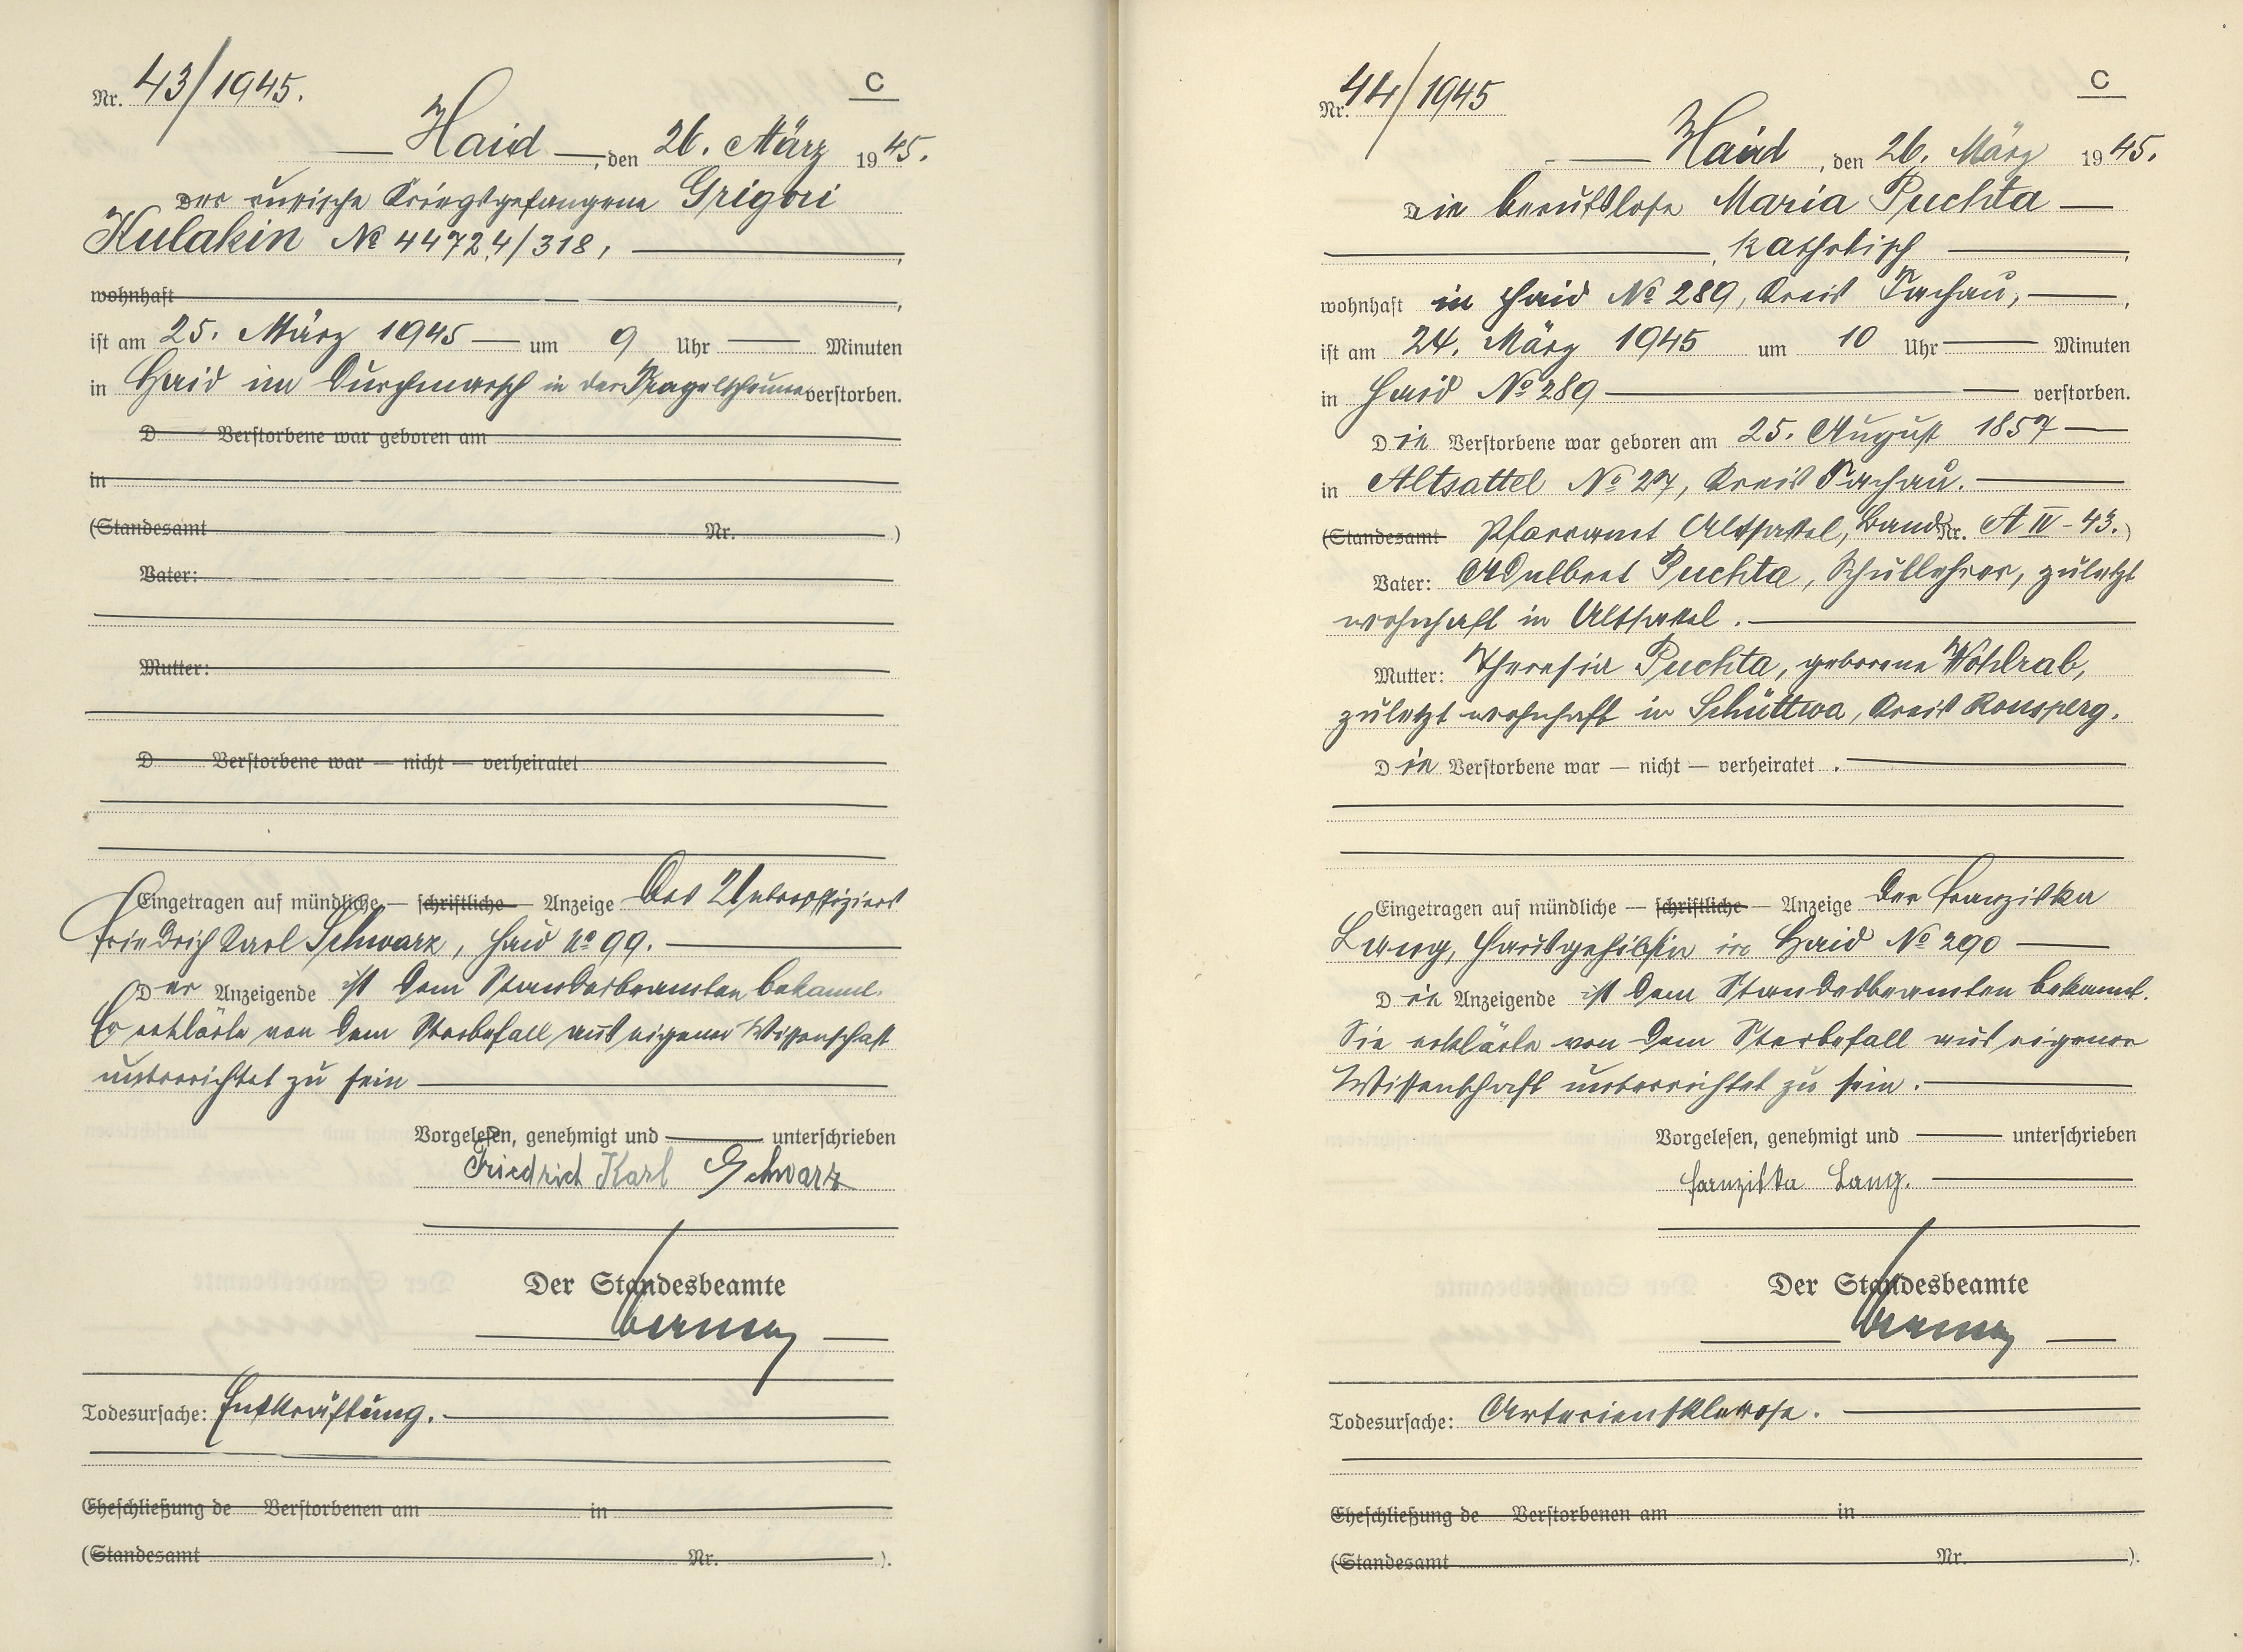 Nr. 43/1945.
C
Haid, den 26. März 1945.
Der russische Kriegsgefangene Grigori
Kulakin № 44724/318,
wohnhaft
ist am 25. März 1945 um 9 Uhr Minuten
in Haid im Durchmarsch in der verstorben.
D Verstorbene war geboren am
in
(Standesamt Nr. )
Vater:
Mutter:
D Verstorbene war — nicht — verheiratet
Eingetragen auf mündliche — schriftliche — Anzeige des Unteroffiziers
Friedrich Karl Schwarz, Haid № 99.
Der Anzeigende ist dem Standesbeamten bekannt.
Er erklärte von dem Sterbefall aus eigener Wissenschaft
unterrichtet zu sein
Vorgelesen, genehmigt und unterschrieben
Friedrich Karl Schwarz
Der Standesbeamte
Todesursache: Entkräftung.
Eheschließung de Verstorbenen am in
(Standesamt Nr. ).
Nr. 44/1945
C
Haid, den 26. März 1945.
Die berufslose Maria Puchta
, katholisch
wohnhaft in Haid № 289, Kreis Tachau,
ist am 24. März 1945 um 10 Uhr Minuten
in Haid № 289 verstorben.
Die Verstorbene war geboren am 25. August 1857
in Altsattel № 27, Kreis Tachau.
(Standesamt Pfarramt Altsattel, Band Nr. A IV - 43.)
Vater: Adalbert Puchta, Schullehrer, zuletzt
wohnhaft in Altsattel.
Mutter: Theresia Puchta, geborene Wohlrab,
zuletzt wohnhaft in Schüttwa, Kreis Ronsperg.
Die Verstorbene war — nicht — verheiratet.
Eingetragen auf mündliche — schriftliche — Anzeige der Franziska
Lang, Hausgehilfin in Haid № 290
Die Anzeigende ist dem Standesbeamten bekannt.
Sie erklärte von dem Sterbefall aus eigener
Wissenschaft unterrichtet zu sein.
Vorgelesen, genehmigt und unterschrieben
Franziska Lang.
Der Standesbeamte
Todesursache: Arteriensklerose.
Eheschließung de Verstorbenen am in
(Standesamt Nr. ).